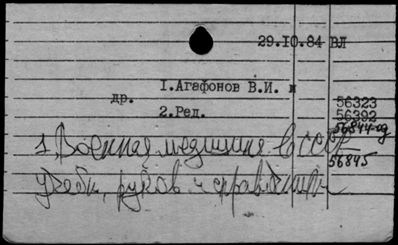 29.10.84 ВЛ
1.Агафонов В.И. и
др.
2.Ред.
56323
56392
56844
56845
1. Военная медицина СССР
учебн, руков и справочники